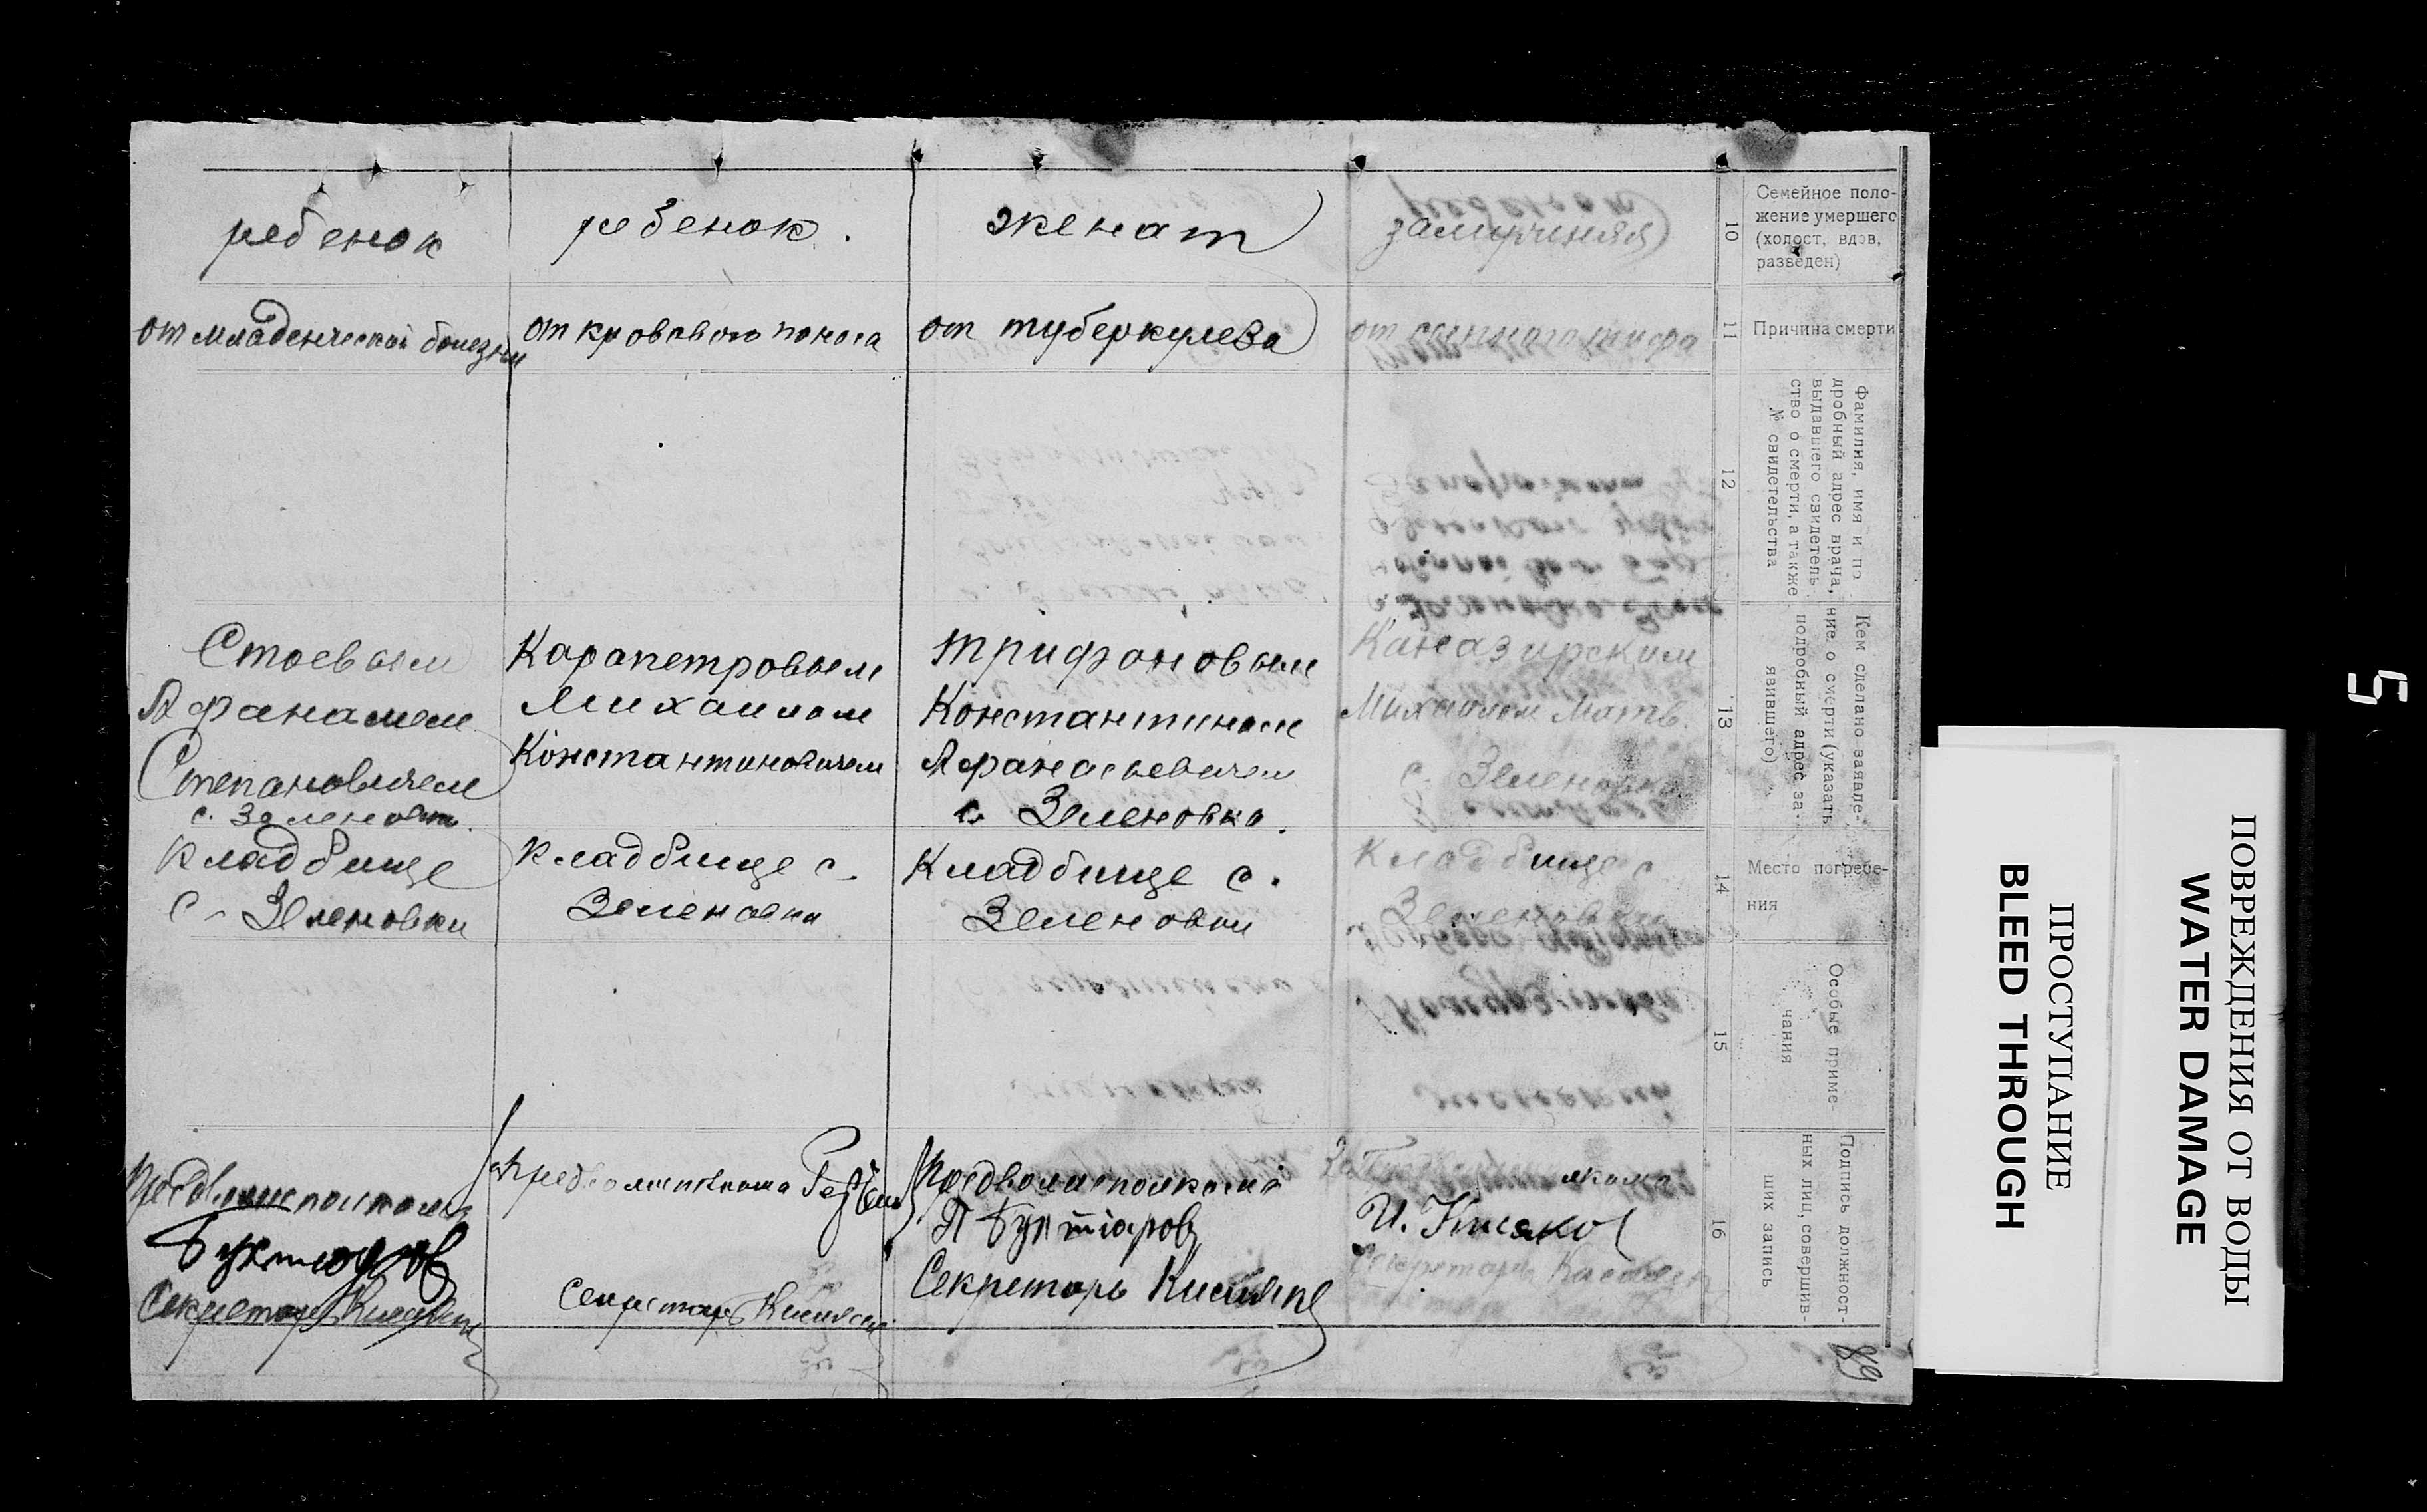 ребенок
ребенок.
женат
замужняя
10
Семейное поло-
жение умершего
(холост, вдов,
разведен)
от младенческой болезни
от кровавого поноса
от туберкулеза
от сыпного тифа
11
Причина смерти
12
Фамилия, имя и по
дробный адрес врача,
выдавшего свидетель
ство о смерти, а также
№ свидетельства
Стоевым
Афанасием
Степановичем
с. Зеленовки
Карапетровым
Михаилом
Константиновичем
Трифоновым
Константином
Афанасьевичем
с Зеленовка.
Каназирским
Михаилом Матв.
с. Зеленовка
13
Кем сделано заявле-
ние о смерти (указать
подробный адрес за-
явившего)
Кладбище
с - Зеленовки
Кладбище с -
Зеленовки
Кладбище с.
Зеленовки
Кладбище с
Зеленовки
14
Место погребе-
ния
15
Особые приме-
чания
Предволисполкома
Бухтияров
Секретарь
Предволисполкома
Секретарь
Предволисполкома
П Бухтіаров
Секретарь
И.
Секретарь
16
Подпись должност-
ных лиц, совершив-
ших запись
89
5
ПРОСТУПАНИЕ
BLEED THROUGH
ПОВРЕЖДЕНИЯ ОТ ВОДЫ
WATER DAMAGE